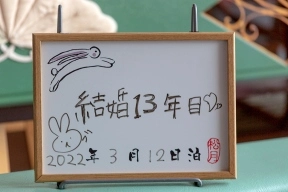 結婚13年目
2022年3月12日泊
松月